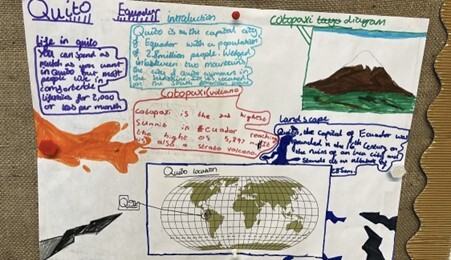 Quito
Ecuador
introduction
Cotopaxi diagram
Life in quito
You can spend as
much as you want
in Quito but most
people live in
comfortable
lifestyle for 2,000
or less per month
Quito is the capital city
of Ecuador with a population
of 2.8 million people.
inbetween the mountains
the city of quito
Cotopaxi (volcano
Cotopaxi is the 2nd highest
Summit in Ecuador reaching
the hight of 5,897
is also a strato volcano
Landscape
Quito, the capital of Ecuador was
founded in the 16th century on
the ruins of an Inca city and
stands at an altitude of
Quito location
Quito